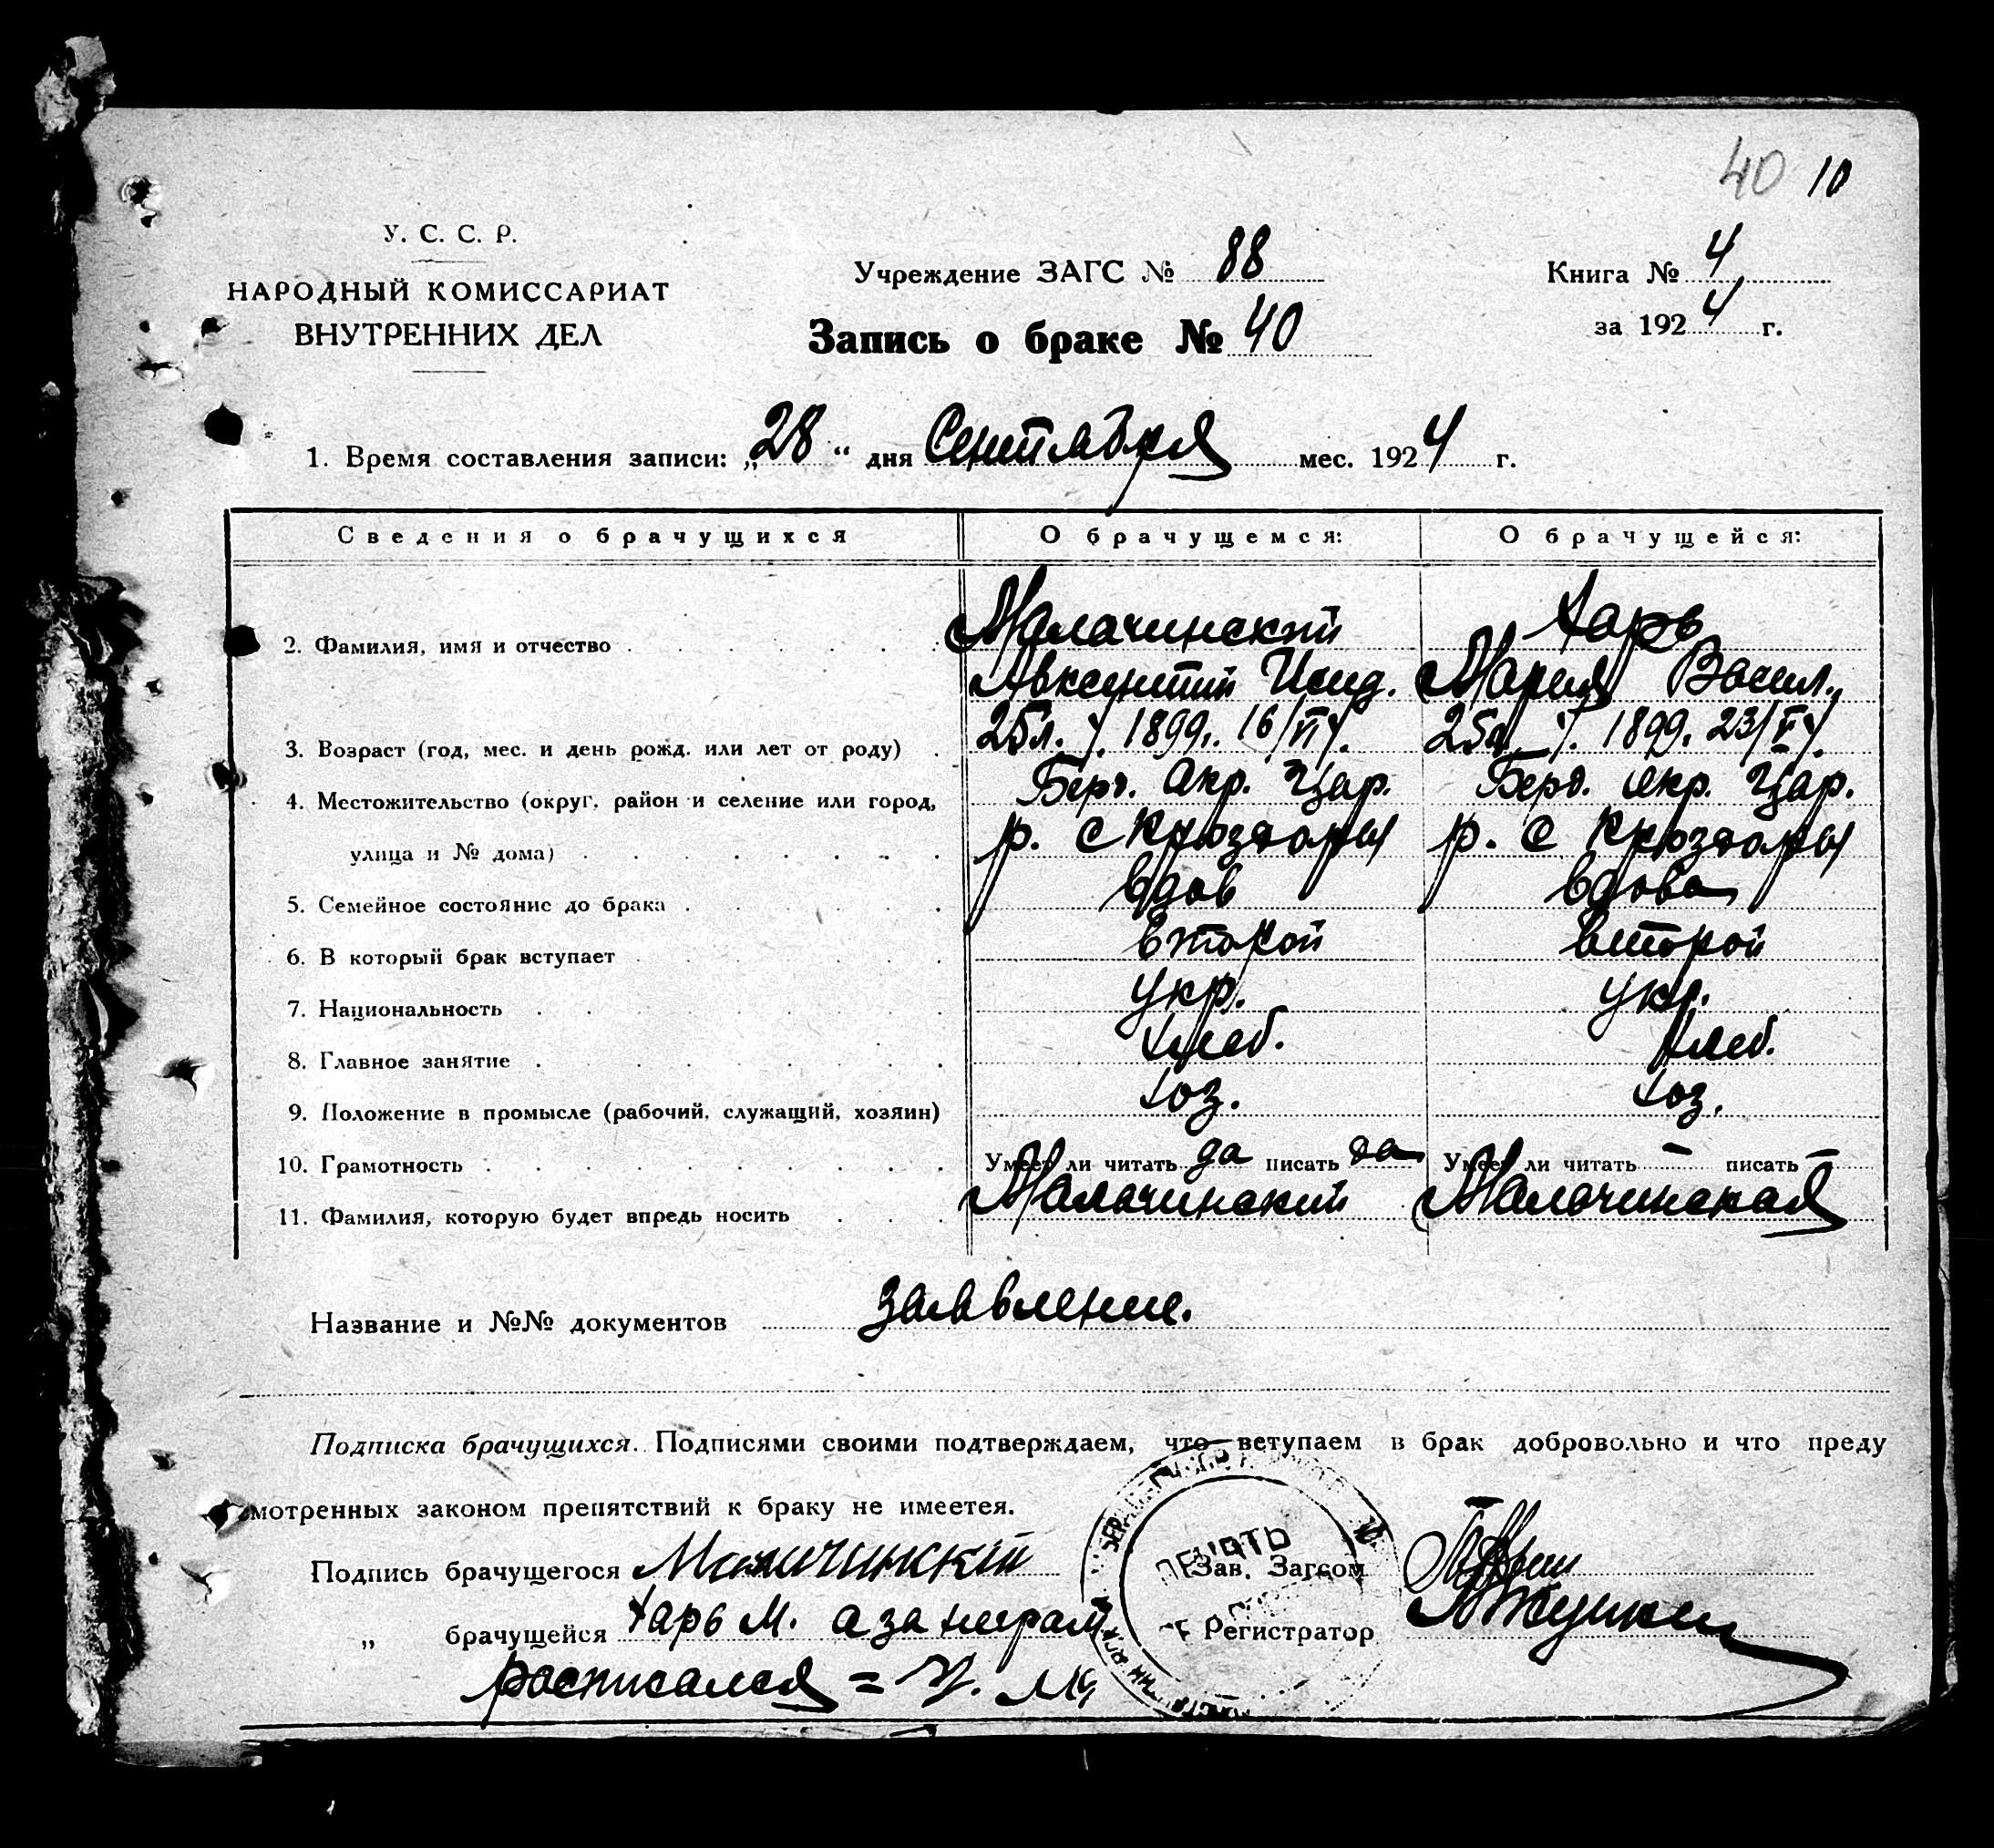 40 10
У. С. С. Р.
НАРОДНЫЙ КОМИССАРИАТ
ВНУТРЕННИХ ДЕЛ
Учреждение ЗАГС № 88
Запись о браке № 40
Книга № 4
за 1924 г.
1. Время составления записи: „28“ дня Сентября мес. 1924 г.
Сведения о брачущихся О брачущемся: О брачущейся:
2. Фамилия, имя и отчество Малачинский Харь
Авксентий Исид. Мария Васил.
3. Возраст (год, мес. и день рожд. или лет от роду) 25л. 1899. 16/VI 25л. 1899. 23/V
4. Местожительство (округ, район и селение или город, Берд. Окр. Цар. Берд. Окр. Цар.
улица и № дома) р. С р. С
5. Семейное состояние до брака вдов вдова
6. В который брак вступает второй второй
7. Национальность укр. укр.
8. Главное занятие хлеб. хлеб.
9. Положение в промысле (рабочий, служащий, хозяин) хоз. хоз.
10. Грамотность Умеет ли читать да писать да Умеет ли читать — писать —
11. Фамилия, которую будет впредь носить Малачинский Малачинская
Название и №№ документов заявление.
Подписка брачущихся. Подписями своими подтверждаем, что вступаем в брак добровольно и что преду
мотренных законом препятствий к браку не имеется.
Подпись брачущегося Малачинский Зав. Загсом
„ брачущейся Харь М. а за неграм Регистратор
росписался =
ПЕЧАТЬ